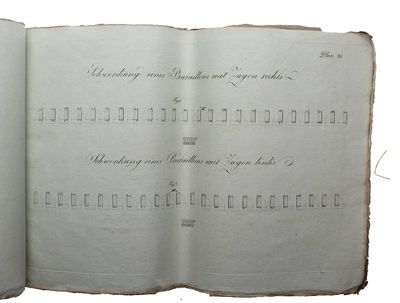 Plan 21
Schwenkung eines Bataillons mit Zügen rechts
Fig. 1
Schwenkung eines Bataillons mit Zügen links
Fig. 2